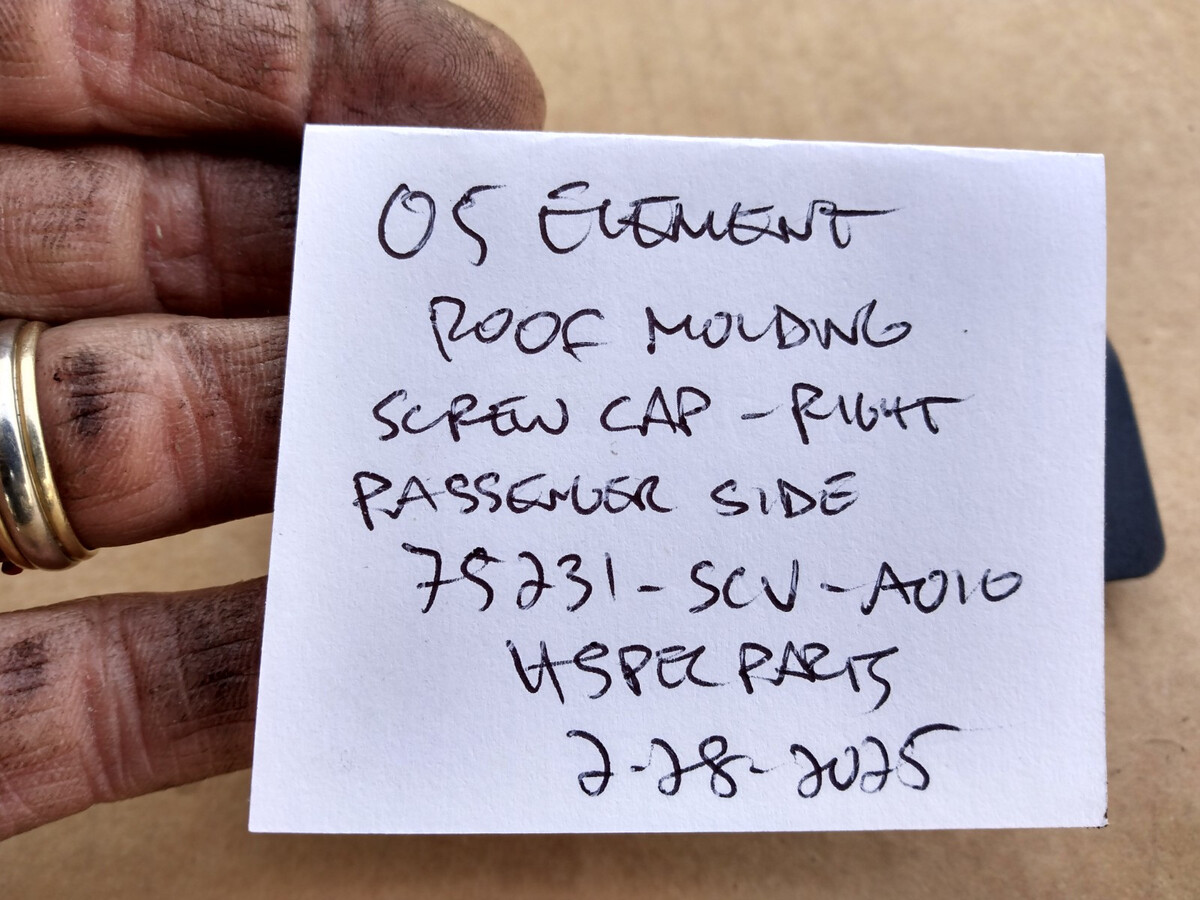 05 ELEMENT
ROOF MOLDING
SCREW CAP - RIGHT
PASSENGER SIDE
75231-SCV-A010
HSPEC PARTS
2-28-2025